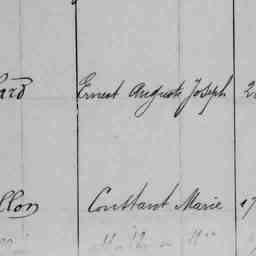 ard Ernest Auguste Joseph 2
llon Constant Marie 17